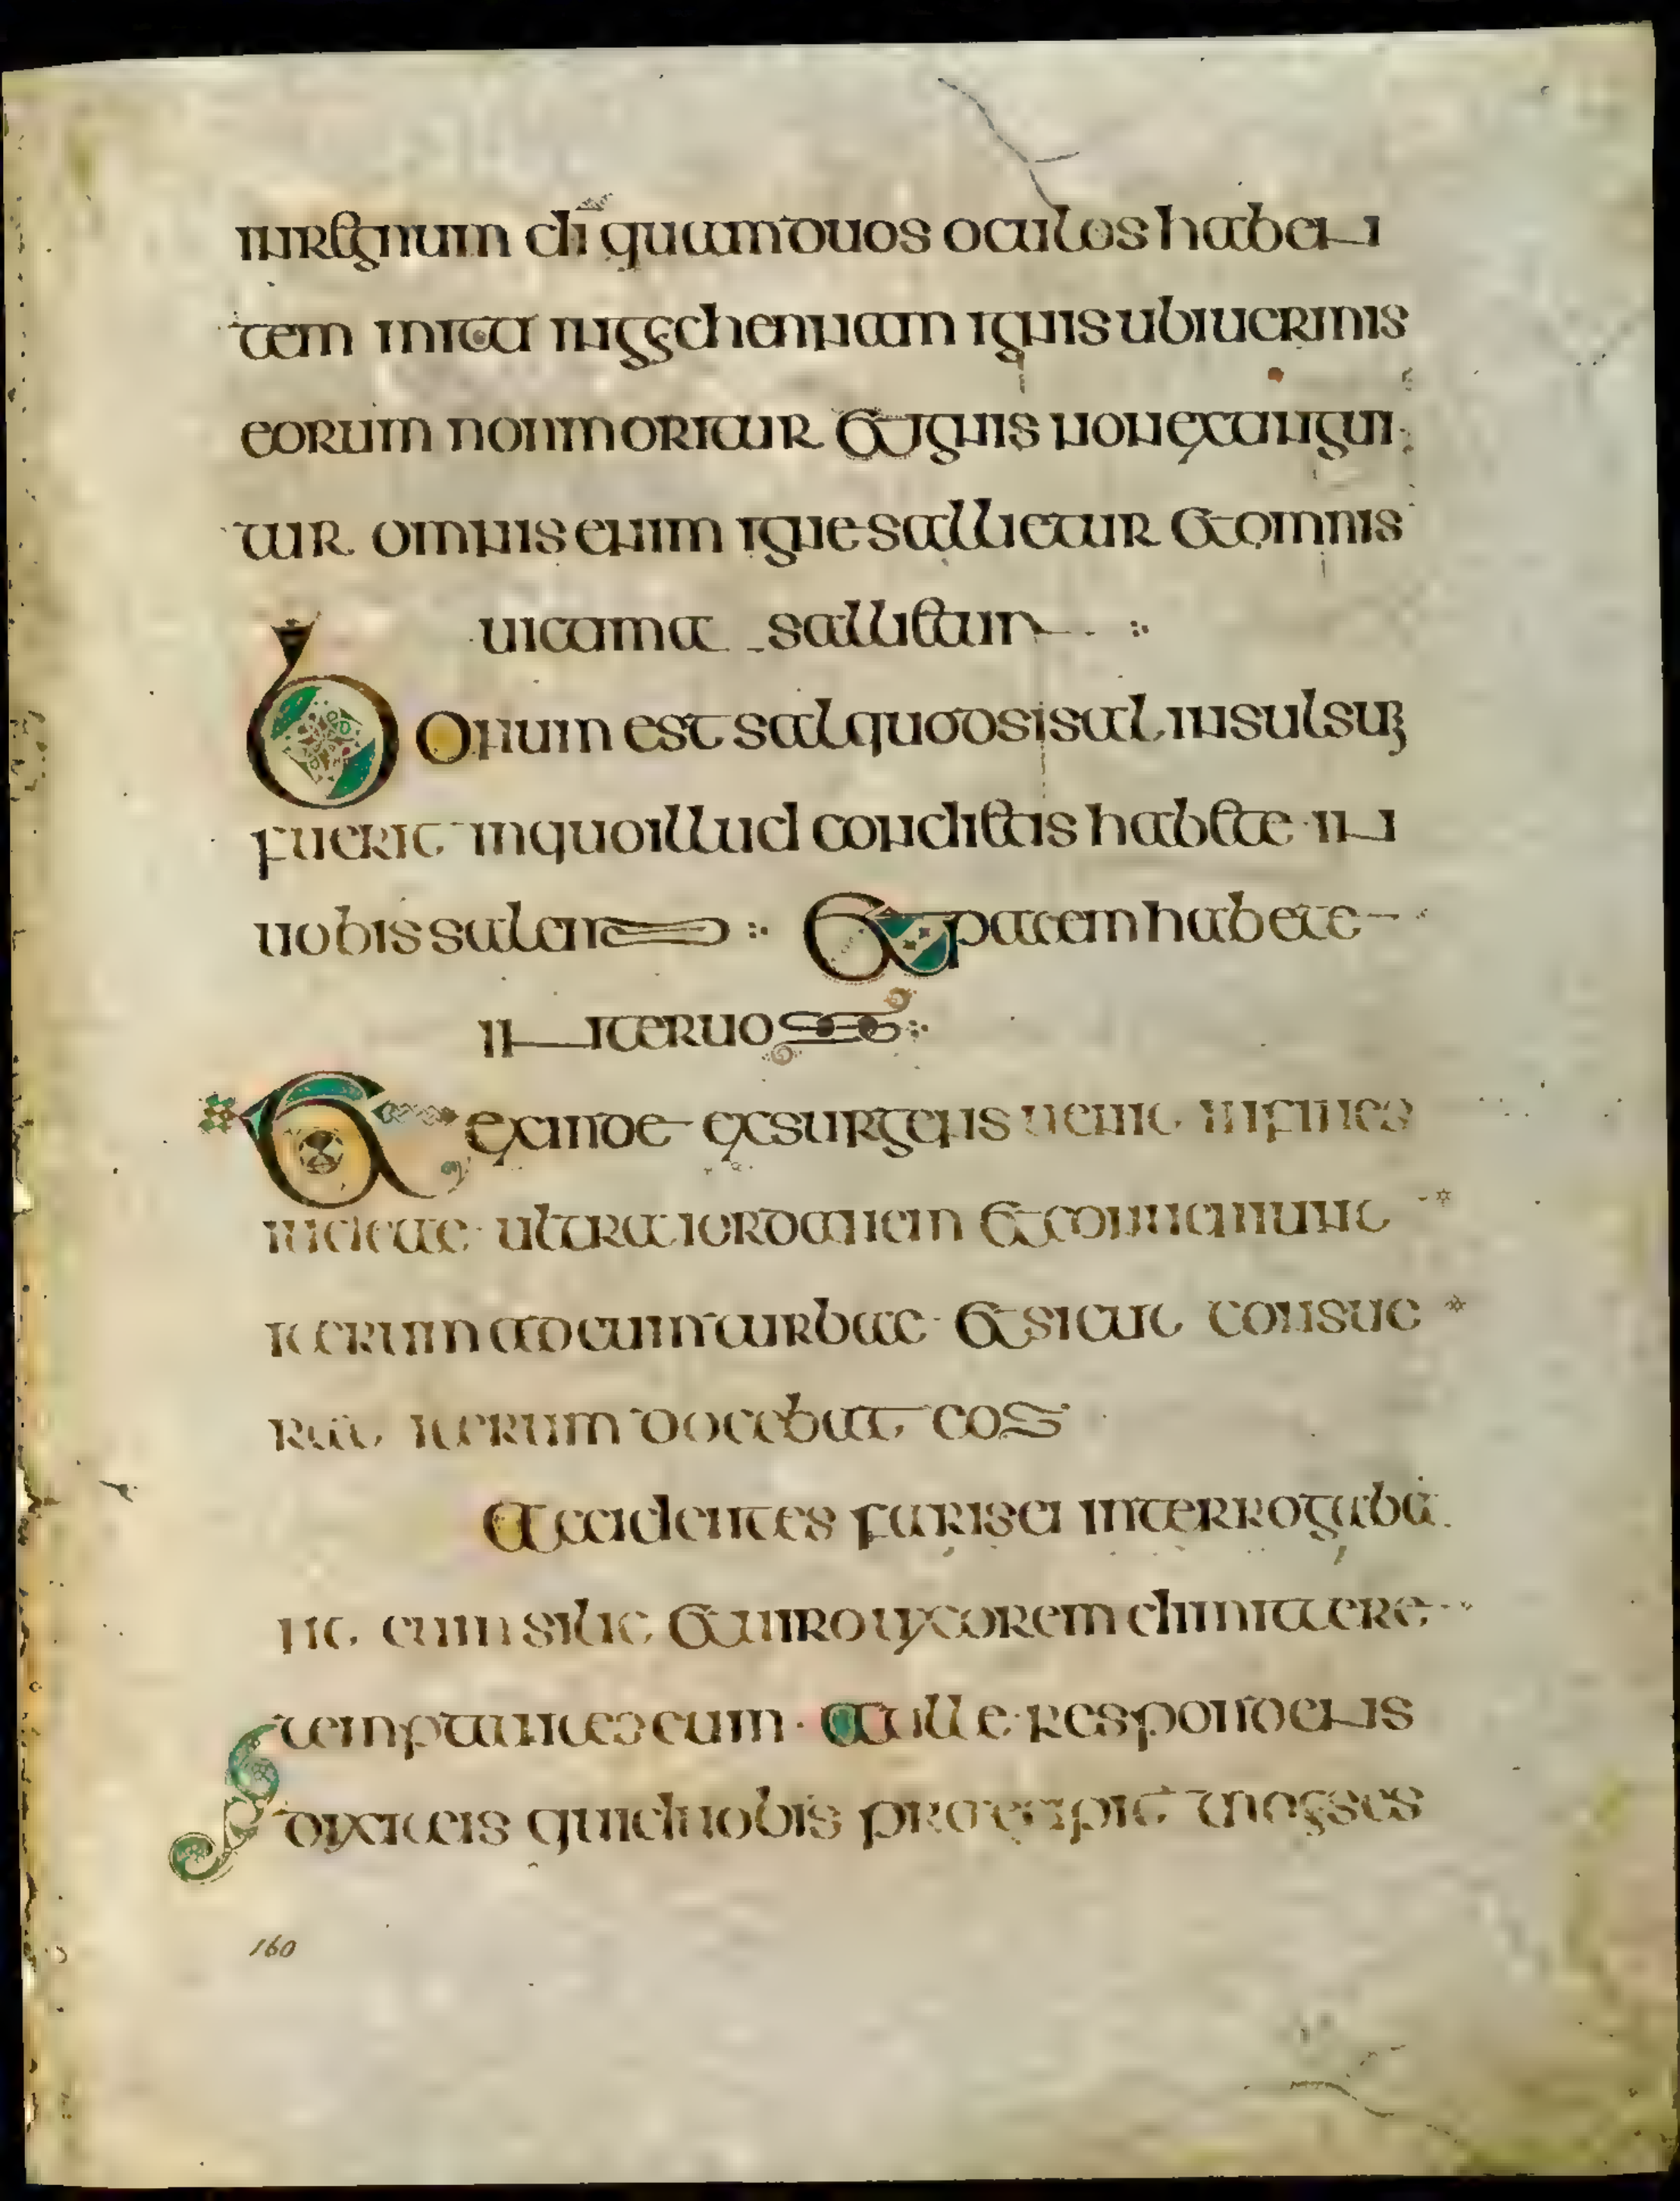 inregnum di quamduos oculos haben
tem miti in gechennam ignis ubiuermis
eorum nonmoritur etignis nonextingui
tur omnis enim igne sallietur etomnis
uictima sallietur
Bonum est sal quodsisal insulsum
fuerit inquoillud condietis habete in
uobis salem Et pacem habete
interuos
Et exinde exsurgens uenit infines
iudeae ultra iordanem etconueniunt
iterum adeum turbae et sicut consue
rat iterum docebat eos
Accidentes farisei interrogaba
nt eum silic& uiro uxorem dimittere
temptantes eum at ille respondens
dixit eis quid uobis praecipit moyses
160